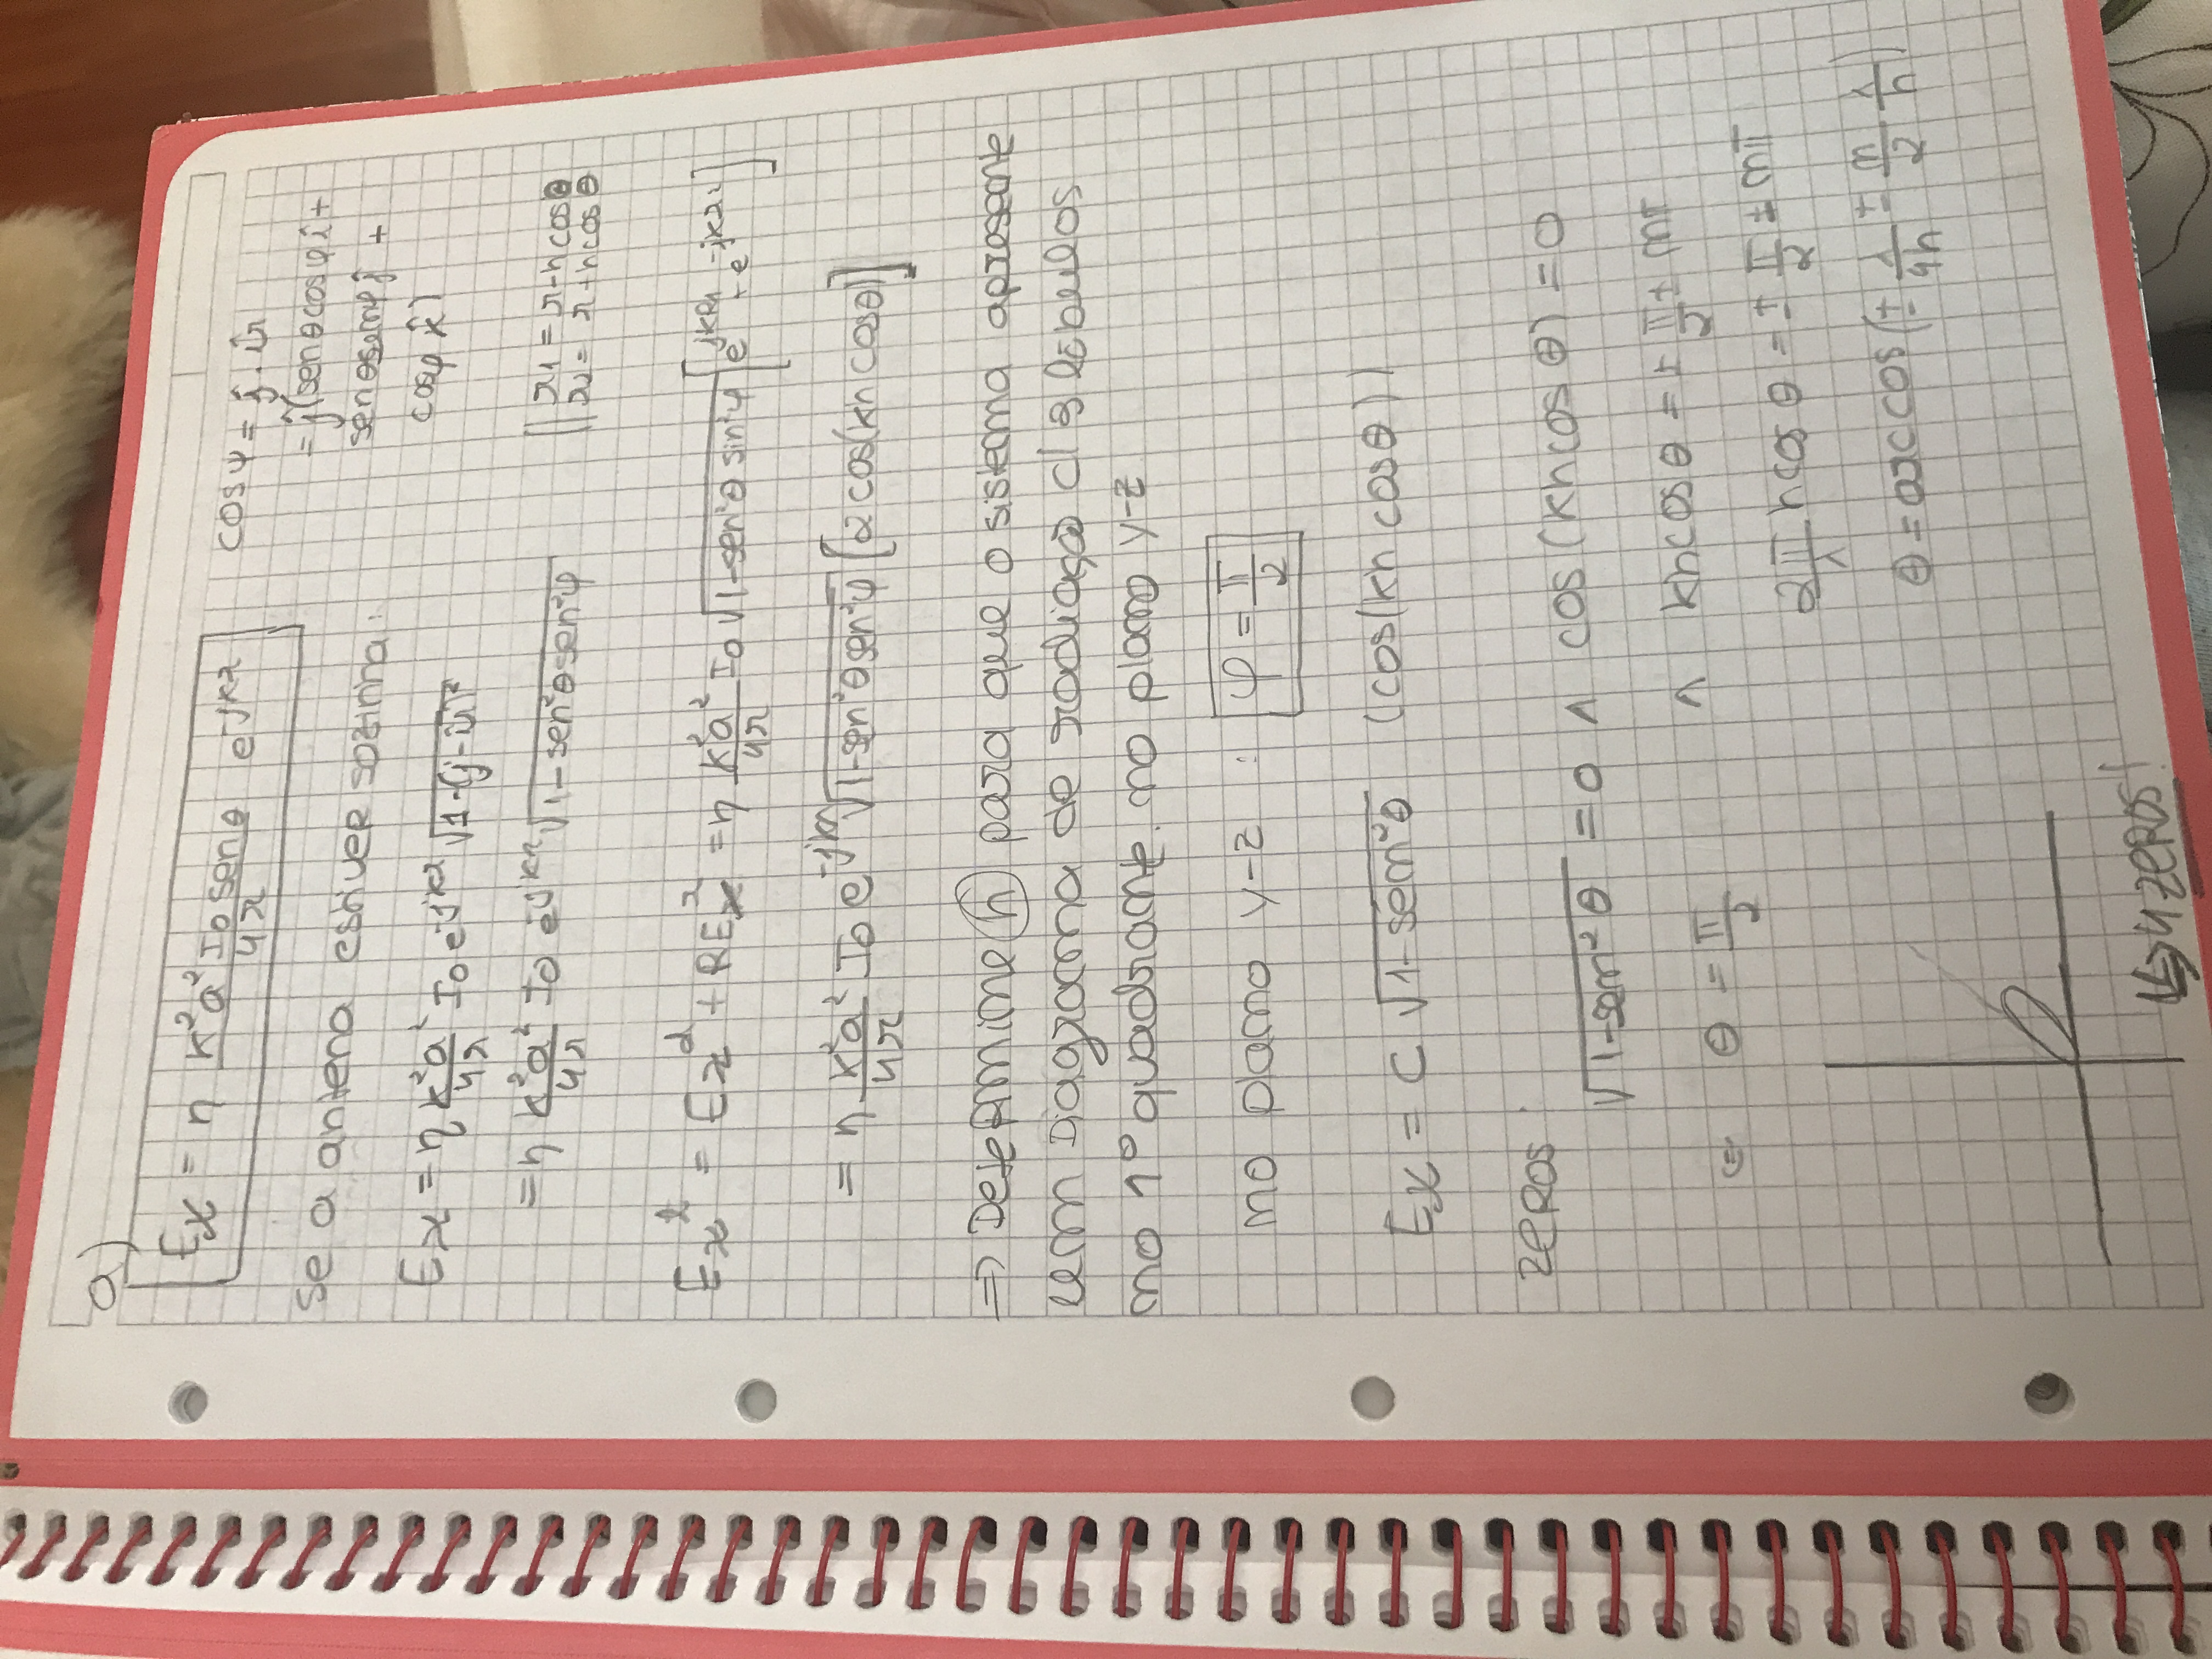 a)
Eχ = η k²a² I₀ senθ / 4r e^-jkr
cos ψ = ĵ . ûr
= ĵ(senθcosφ î +
senθsenφ ĵ +
cosφ k̂)
se a antena estiver sozinha:
Eχ = η k²a²/4r I₀ e^-jkr √1-(j-ûr)²
= η k²a²/4r I₀ e^jkr √1-sen²θsen²φ
r1 = r-hcosθ
r2 = r+hcosθ
Eχ^t = Eχ^d + REχ^r = η k²a²/4r I₀ √1-sen²θ sin²φ [e^jkR1 + e^-jkr2]
= η k²a²/4r I₀ e^-jkr √1-sen²θsen²φ [2 cos(kh cosθ)]
⇒ Determine h para que o sistema apresente
um Diagrama de radiação c/ 3 lóbulos
no 1º quadrante. no plano y-z
no plano y-z : φ = π/2
Eχ = C √1-sen²θ (cos(kh cosθ))
zeros:
√1-sen²θ = 0 ∧ cos(khcosθ) = 0
⇔ θ = π/2 ∧ khcosθ = ± π/2 ± nπ
2π/λ hcosθ = ± π/2 ± nπ
θ = arccos(± λ/4h ± n/2 λ/h)
↳ 4 zeros!